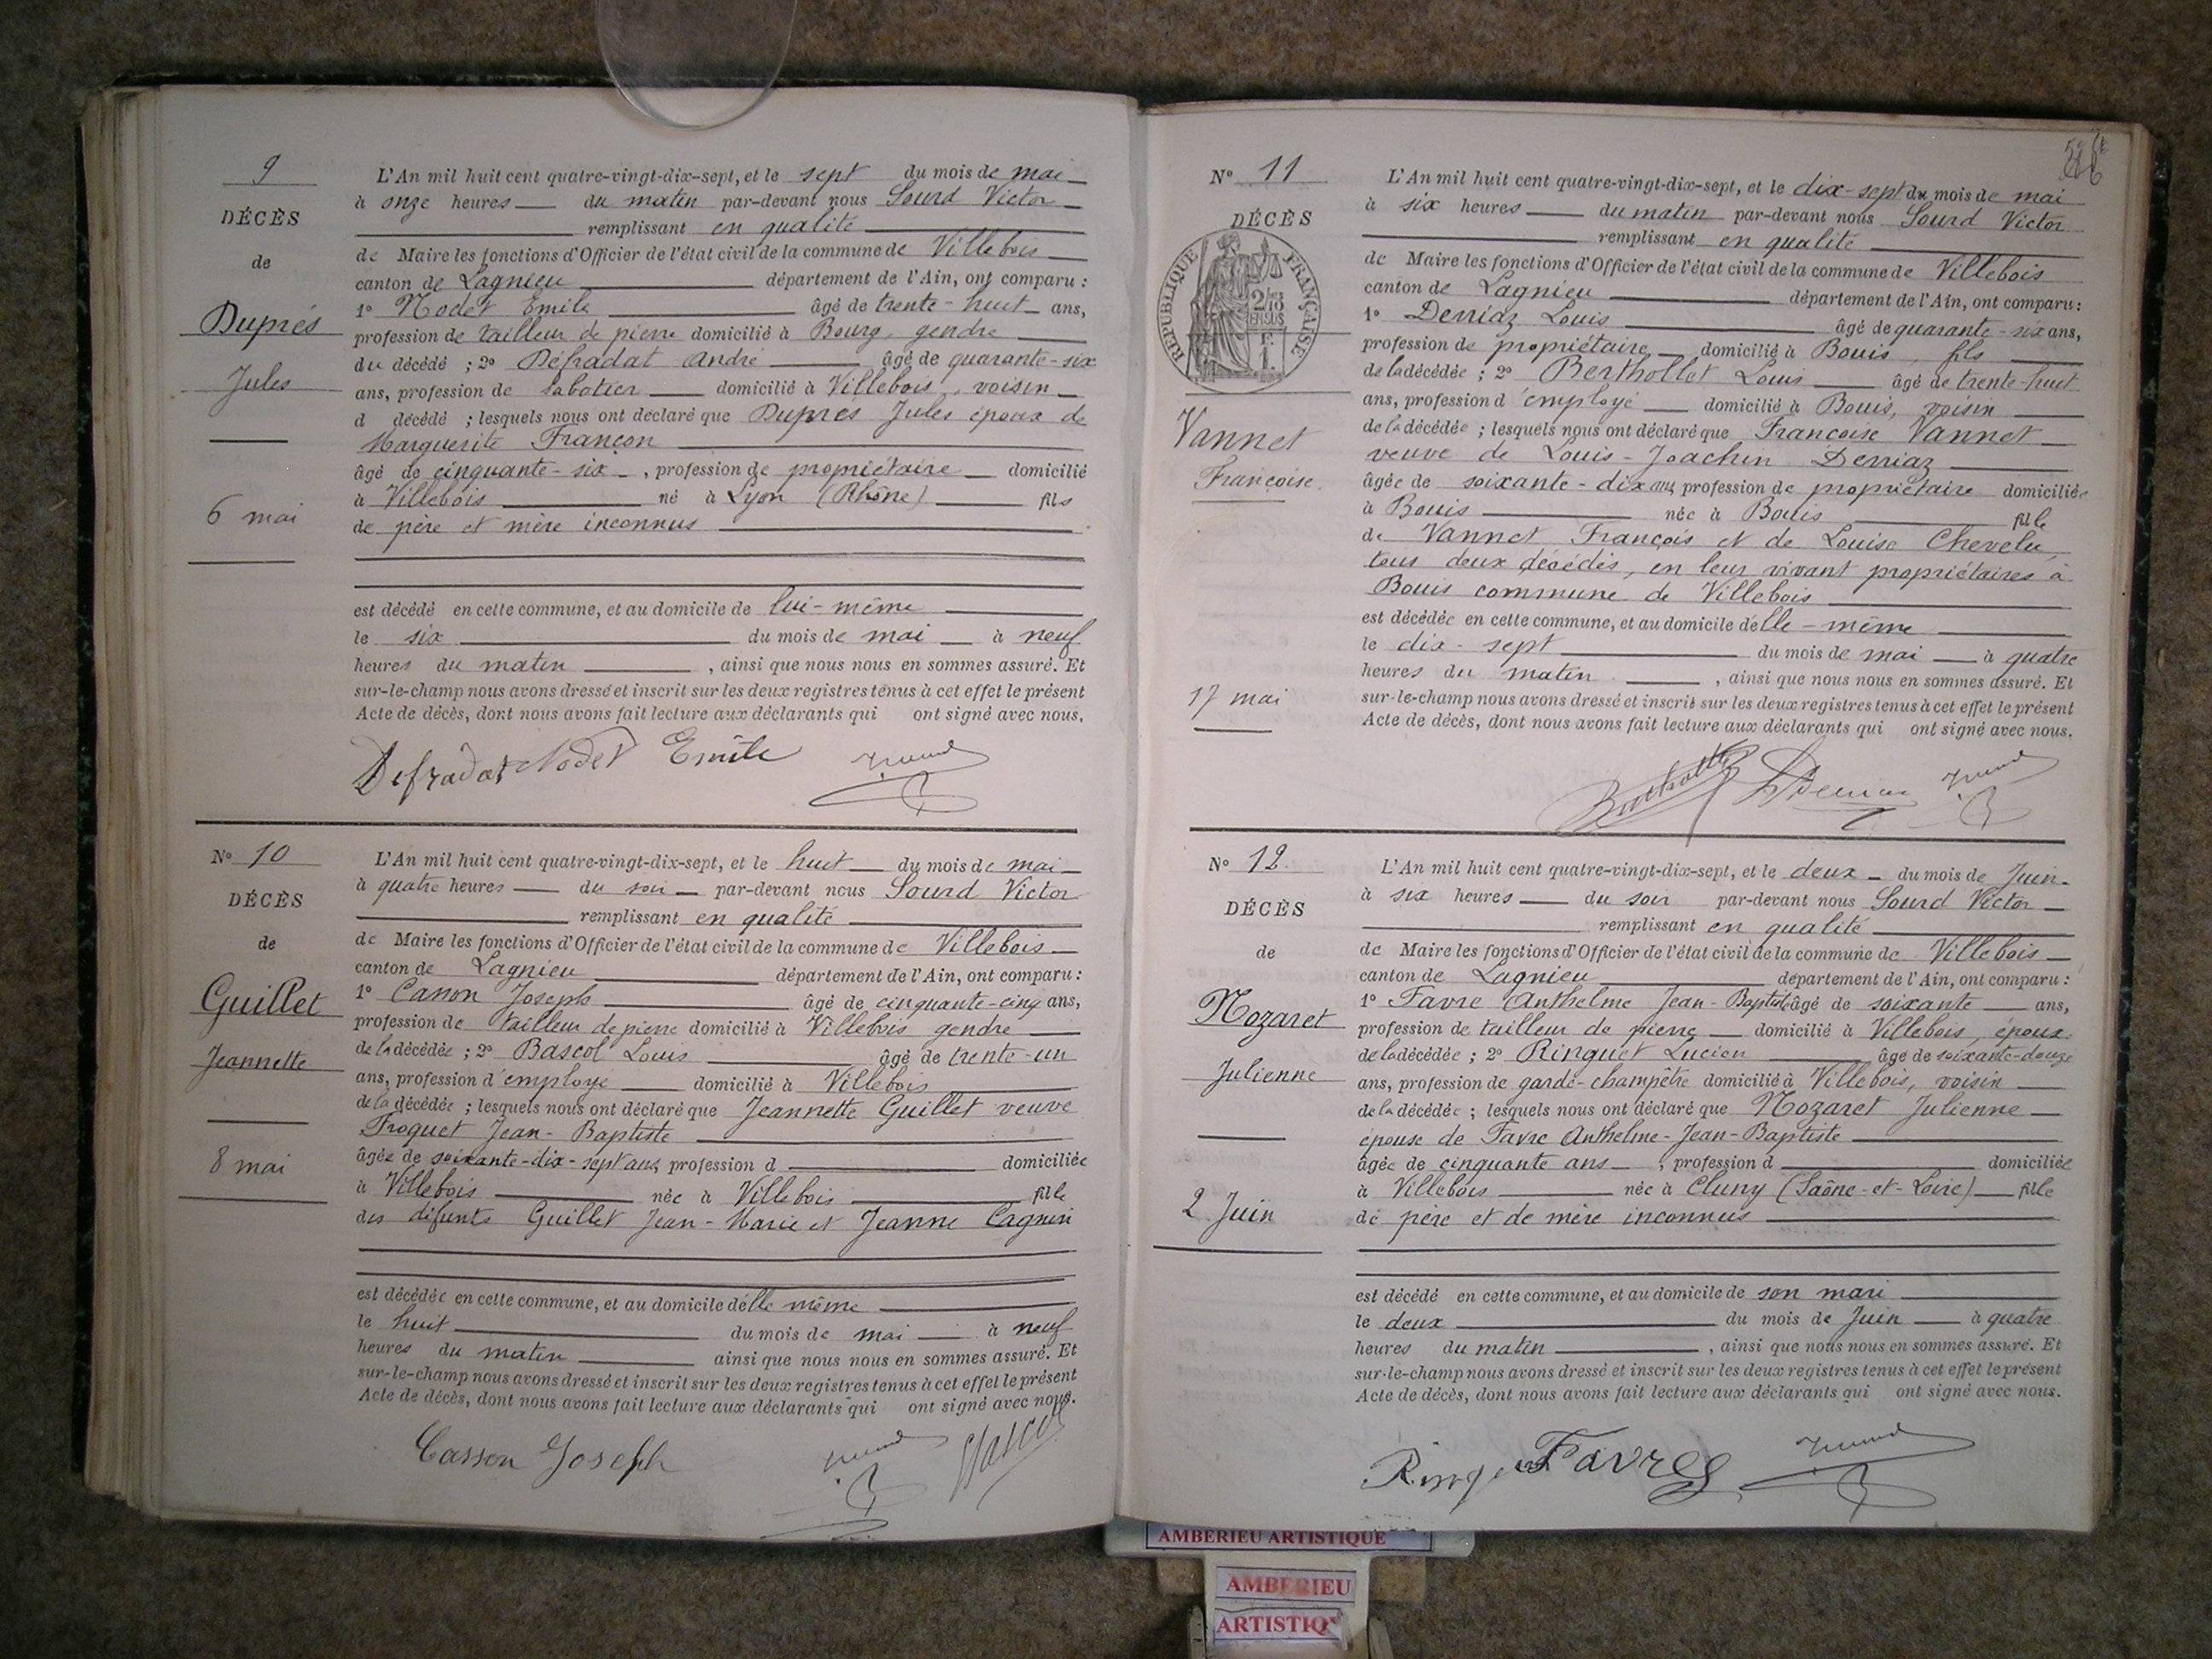 9
DÉCÈS
de
Duprés
Jules
6 mai
L'An mil huit cent quatre-vingt-dix-sept, et le sept du mois de mai
à onze heures du matin par-devant nous Sourd Victor
remplissant en qualité
de Maire les fonctions d'Officier de l'état civil de la commune de Villebois
canton de Lagnieu département de l'Ain, ont comparu :
1° Nodet Emile âgé de trente-huit ans,
profession de tailleur de pierre domicilié à Bourg, gendre
du décédé ; 2° Défradat André âgé de quarante-six
ans, profession de Sabotier domicilié à Villebois, voisin
d décédé ; lesquels nous ont déclaré que Duprés Jules époux de
Marguerite Françon
âgé de cinquante-six, profession de propriétaire domicilié
à Villebois né à Lyon (Rhône) fils
de père et mère inconnus
est décédé en cette commune, et au domicile de lui-même
le six du mois de mai à neuf
heures du matin, ainsi que nous nous en sommes assuré. Et
sur-le-champ nous avons dressé et inscrit sur les deux registres tenus à cet effet le présent
Acte de décès, dont nous avons fait lecture aux déclarants qui ont signé avec nous.
Defradat Nodet Emile
N° 10
DÉCÈS
de
Guillet
Jeannette
8 mai
L'An mil huit cent quatre-vingt-dix-sept, et le huit du mois de mai
à quatre heures du soir par-devant nous Sourd Victor
remplissant en qualité
de Maire les fonctions d'Officier de l'état civil de la commune de Villebois
canton de Lagnieu département de l'Ain, ont comparu :
1° Casson Joseph âgé de cinquante-cinq ans,
profession de tailleur de pierre domicilié à Villebois gendre
de la décédée ; 2° Bascol Louis âgé de trente-un
ans, profession d'employé domicilié à Villebois
de la décédée ; lesquels nous ont déclaré que Jeannette Guillet veuve
Froquet Jean-Baptiste
âgée de soixante-dix-sept ans, profession d domiciliée
à Villebois née à Villebois fille
des défunts Guillet Jean-Marie et Jeanne Cagnin
est décédée en cette commune, et au domicile d'elle même
le huit du mois de mai à neuf
heures du matin ainsi que nous nous en sommes assuré. Et
sur-le-champ nous avons dressé et inscrit sur les deux registres tenus à cet effet le présent
Acte de décès, dont nous avons fait lecture aux déclarants qui ont signé avec nous.
Casson Joseph Bascol
N° 11
DÉCÈS
RÉPUBLIQUE FRANÇAISE
2/10 EN SUS
Vannet
Françoise
17 mai
L'An mil huit cent quatre-vingt-dix-sept, et le dix-sept du mois de mai
à six heures du matin par-devant nous Sourd Victor
remplissant en qualité
de Maire les fonctions d'Officier de l'état civil de la commune de Villebois
canton de Lagnieu département de l'Ain, ont comparu :
1° Derriaz Louis âgé de quarante-six ans,
profession de propriétaire domicilié à Bouis fils
de la décédée ; 2° Berthollet Louis âgé de trente-huit
ans, profession d'employé domicilié à Bouis, voisin
de la décédée ; lesquels nous ont déclaré que Françoise Vannet
veuve de Louis-Joachin Derriaz
âgée de soixante-dix ans, profession de propriétaire domiciliée
à Bouis née à Bouis fille
de Vannet François et de Louise Chevelu,
tous deux décédés, en leur vivant propriétaires à
Bouis commune de Villebois
est décédée en cette commune, et au domicile d'elle-même
le dix-sept du mois de mai à quatre
heures du matin, ainsi que nous nous en sommes assuré. Et
sur-le-champ nous avons dressé et inscrit sur les deux registres tenus à cet effet le présent
Acte de décès, dont nous avons fait lecture aux déclarants qui ont signé avec nous.
N° 12
DÉCÈS
de
Mozaret
Julienne
2 Juin
L'An mil huit cent quatre-vingt-dix-sept, et le deux du mois de Juin
à six heures du soir par-devant nous Sourd Victor
remplissant en qualité
de Maire les fonctions d'Officier de l'état civil de la commune de Villebois
canton de Lagnieu département de l'Ain, ont comparu :
1° Favre Anthelme Jean-Baptiste âgé de soixante ans,
profession de tailleur de pierre domicilié à Villebois, époux
de la décédée ; 2° Ringuet Lucien âgé de soixante-douze
ans, profession de garde-champêtre domicilié à Villebois, voisin
de la décédée ; lesquels nous ont déclaré que Mozaret Julienne
épouse de Favre Anthelme-Jean-Baptiste
âgée de cinquante ans, profession d domiciliée
à Villebois née à Cluny (Saône-et-Loire) fille
de père et de mère inconnus
est décédé en cette commune, et au domicile de son mari
le deux du mois de Juin à quatre
heures du matin, ainsi que nous nous en sommes assuré. Et
sur-le-champ nous avons dressé et inscrit sur les deux registres tenus à cet effet le présent
Acte de décès, dont nous avons fait lecture aux déclarants qui ont signé avec nous.
Favre
AMBERIEU ARTISTIQUE
AMBERIEU
ARTISTIQ